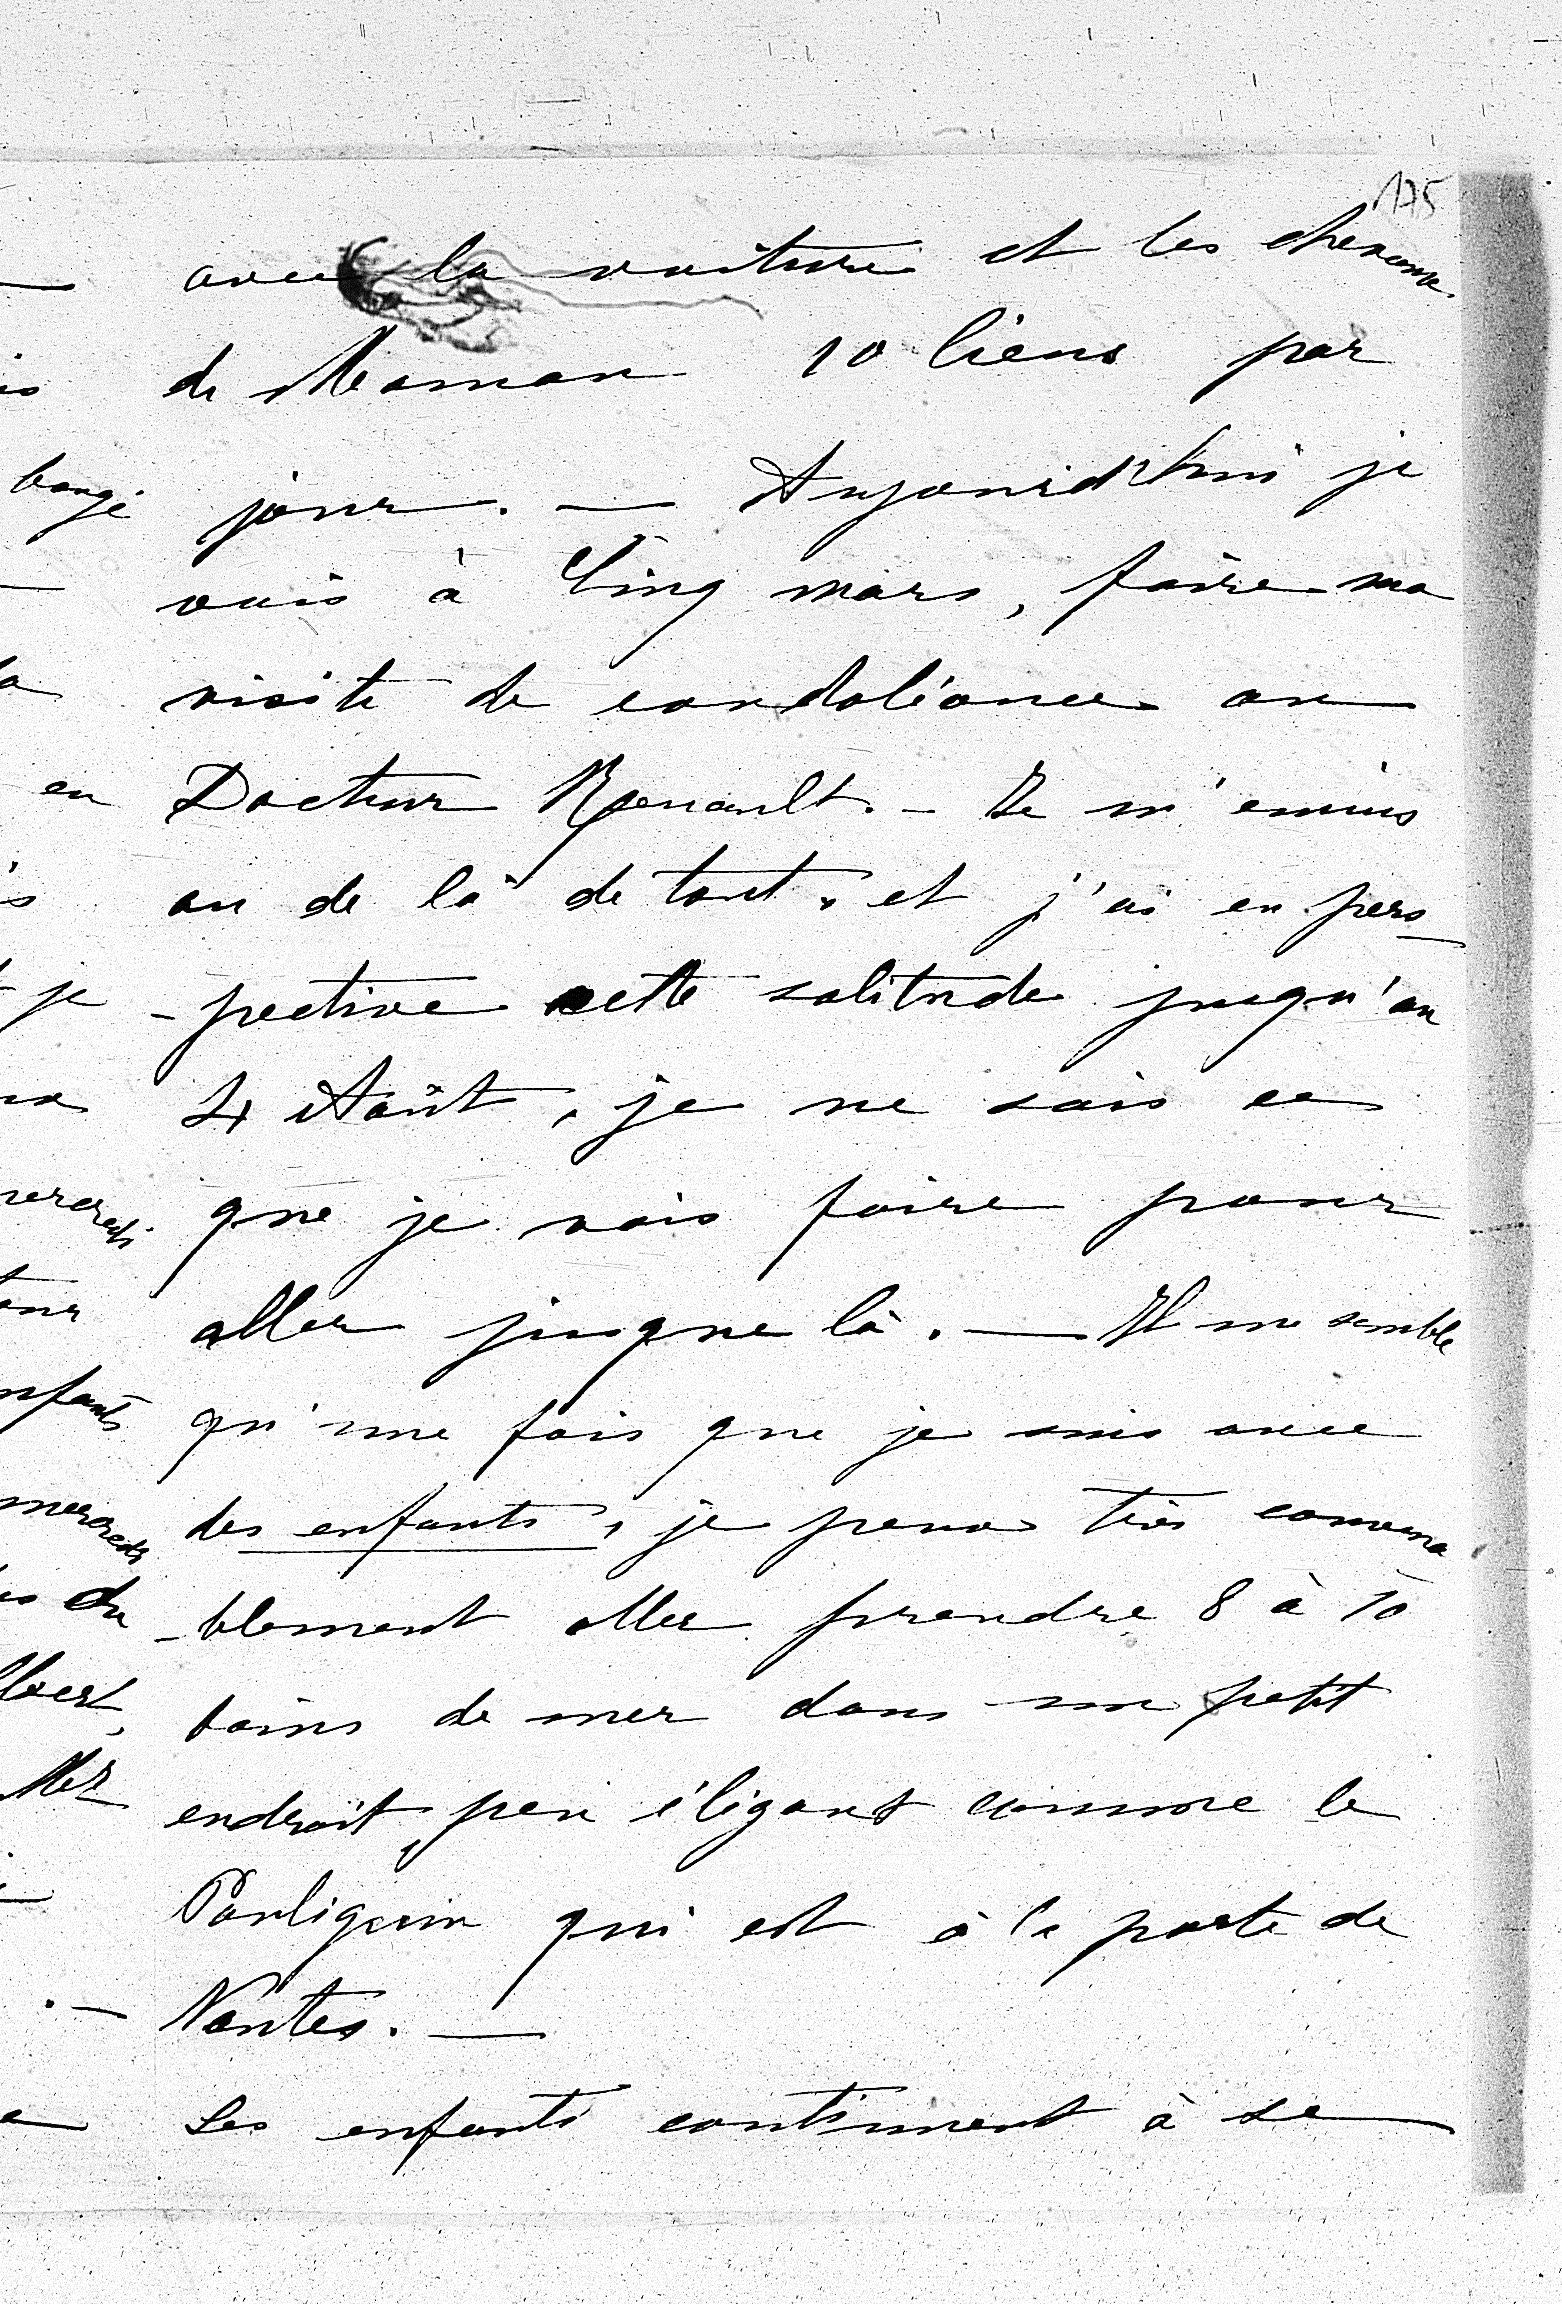 175
avec la voiture et les chevaux
de Maman 10 lieus par
jour. — Aujourd'hui je
vais à Cinq mars, faire ma
visite de condoléance au
Docteur Renault. — Je m'ennuis
au de là de tout, et j'ai en pers-
-pective cette solitude jusqu'au
4 Août, je ne sais ce
que je vais faire pour
aller jusque là. — Il me semble
qu'une fois que je suis avec
des enfants, je peux très convena
-blement aller prendre 8 à 10
bains de mer dans un petit
endroit peu élégant comme le
Pouliguin qui est à la porte de
Nantes. —
Les enfants continuent à se